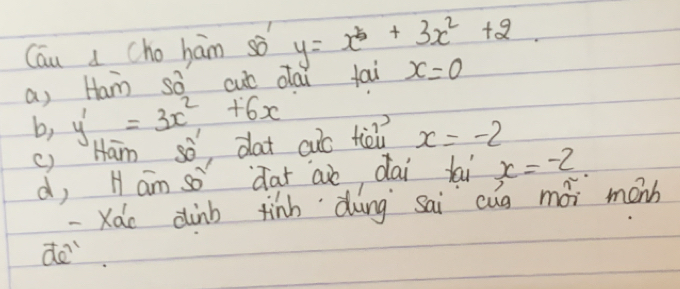 Câu 1 Cho hàm số y = x³ + 3x² + 2.
a, Hàm số cực đại tại x = 0
b, y' = 3x² + 6x
c, Hàm số đạt cực tiểu x = -2
d, Hàm số đạt cực đại tại x = -2.
- Xác định tính đúng sai của mỗi mệnh
đề.